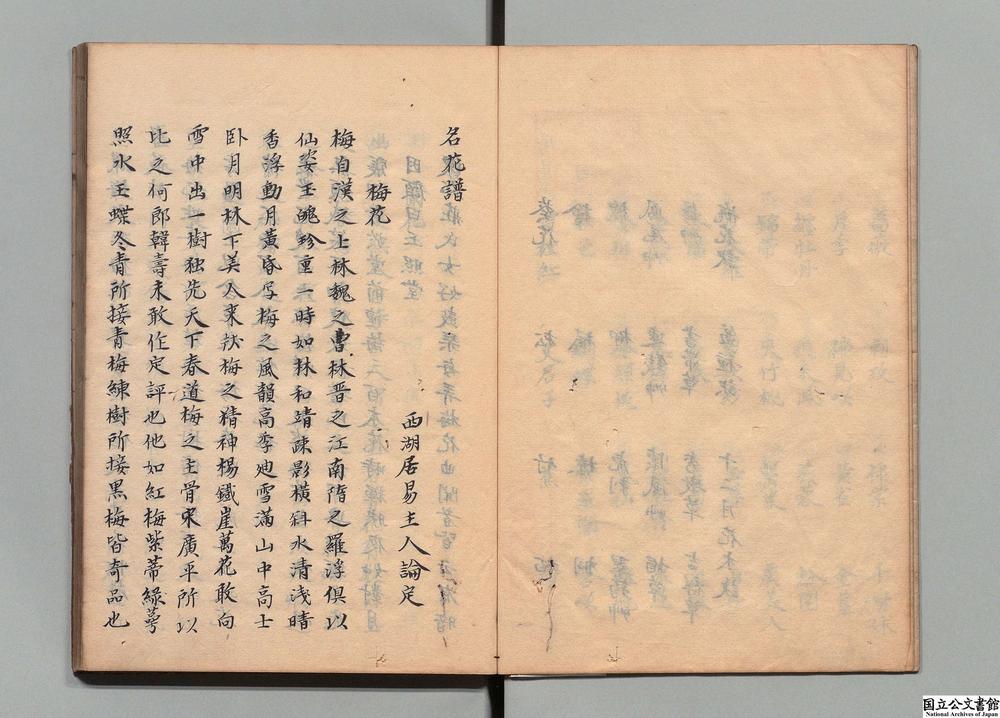 名花譜
西湖居易主人論定
梅花
梅自漢之上林魏之曹林晋之江南隋之羅浮俱以
仙姿玉魄珍重一時如林和靖疎影橫斜水清浅暗
香浮動月黄昏写梅之風韻高季迪雪滿山中高士
卧月明林下美人来状梅之精神楊鐵崖萬花敢向
雪中出一樹独先天下春道梅之主骨宋廣平所以
比之何郎韓壽未敢作定評也他如紅梅紫蒂綠萼
照水玉蝶冬青所接青梅練樹所接黒梅皆奇品也
国立公文書館
National Archives of Japan